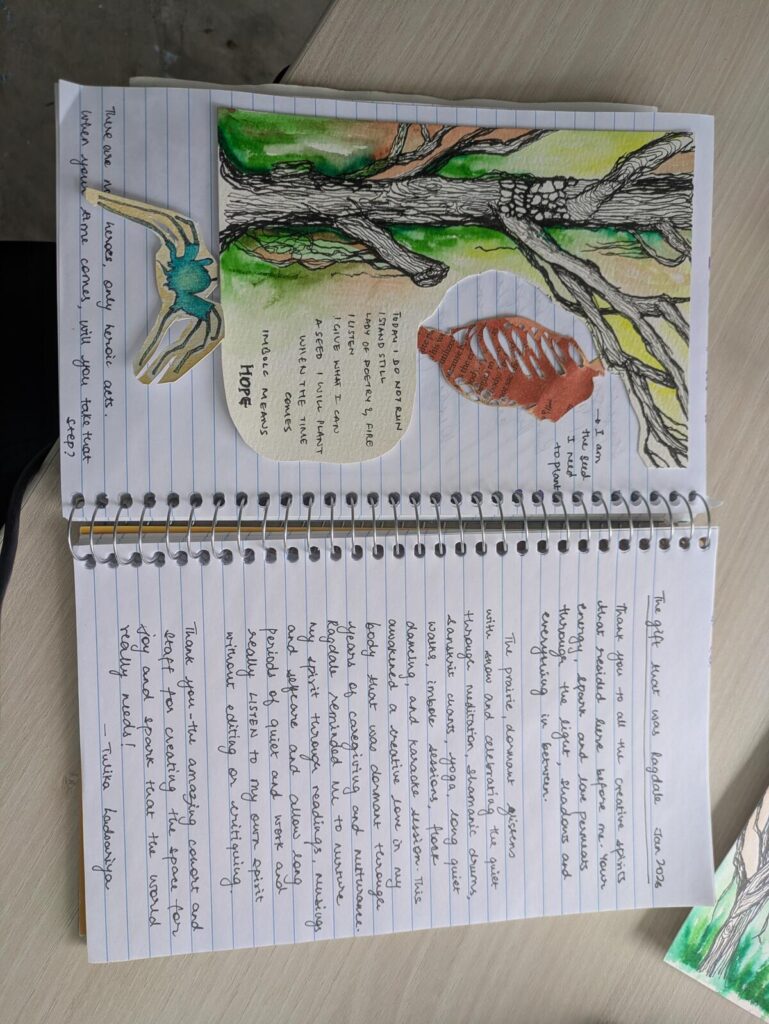 → I am
the seed
I need
to plant
TODAY I DO NOT RUN
I STAND STILL
LADY OF POETRY & FIRE
I LISTEN
I GIVE WHAT I CAN
A SEED I WILL PLANT
WHEN THE TIME
COMES
IMBOLC MEANS
HOPE
There are no heroes, only heroic acts.
When your time comes, will you take that
step?
The gift that was Ragdale Jan 2026
Thank you to all the creative spirits
that resided here before me. Your
energy, spark and love permeats
through the light, shadows and
everything in between.
The prairie, dormant glistens
with snow and celebrating the quiet
through meditation, shamanic drums,
sanskrit chants, yoga, long quiet
walks, imbolc sessions, floor
dancing, and karaoke session. This
awakened a creative love in my
body that was dormant through
years of caregiving and nurturance.
Ragdale reminded me to nurture
my spirit through readings, musings
and selfcare and allow long
periods of quiet and work and
really LISTEN to my own spirit
without editing or critiquing.
Thank you - the amazing cohort and
staff for creating the space for
joy and spark that the world
really needs!
— Tulika Ladsariya